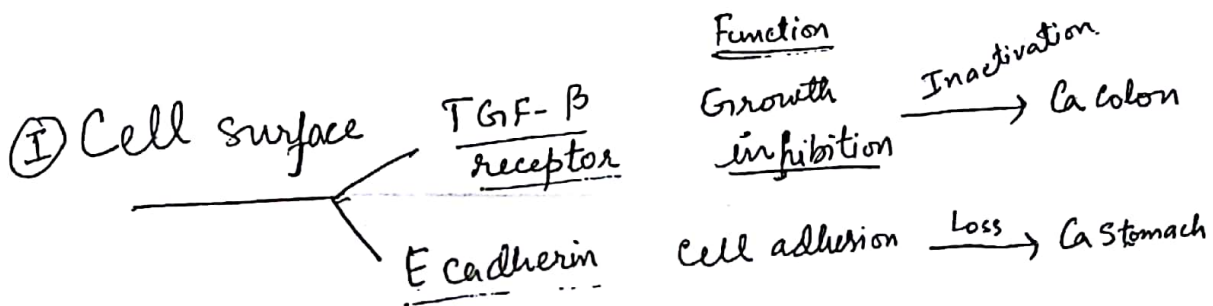 Function
Ⓘ Cell surface
TGF-β
receptor
Growth
inhibition
Inactivation
Ca colon
E cadherin
Cell adhesion
Loss
Ca Stomach